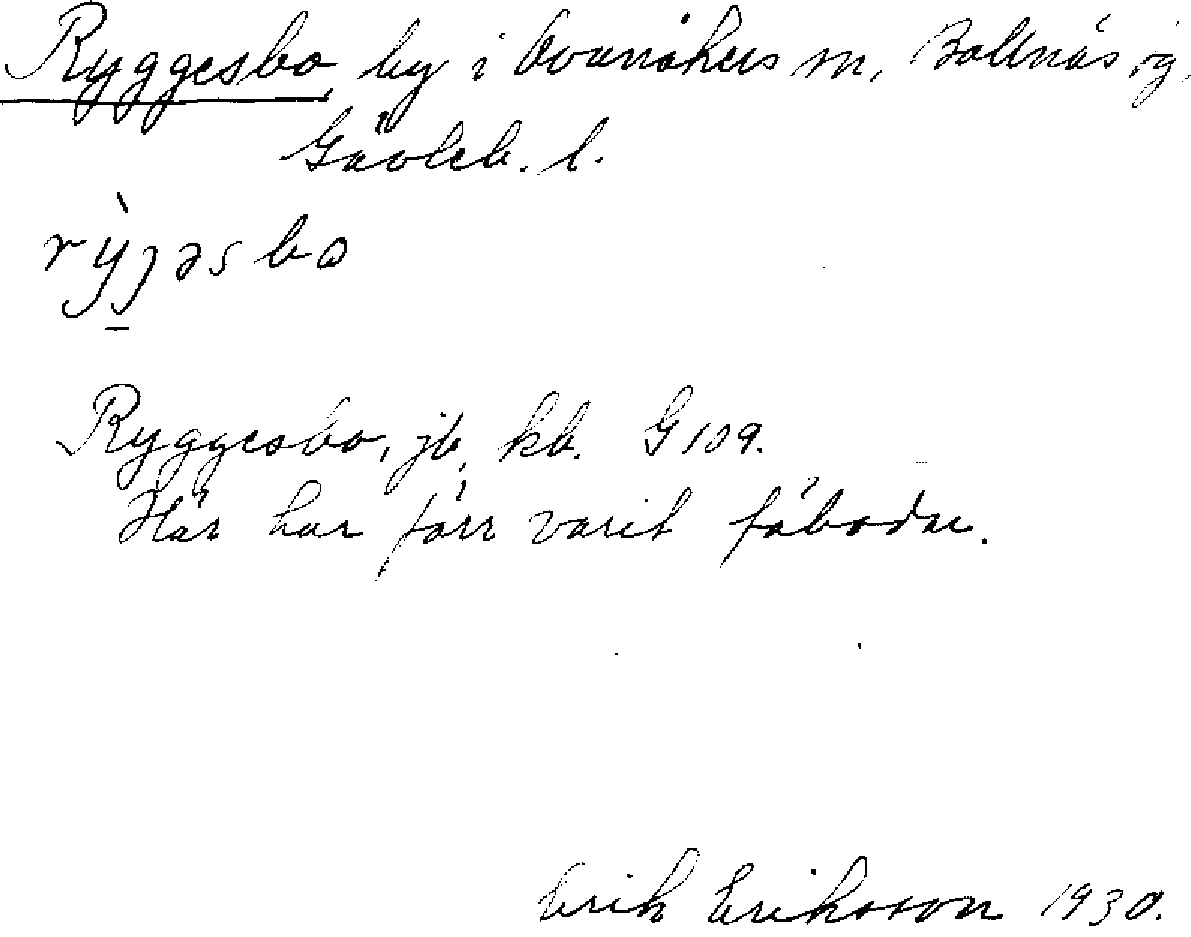 Ryggesbo, by i Ovanåkers sn, Bollnäs jg,
Gävleb. l.
rỳɟəsbo
Ryggesbo, jb, kb. G 109.
Här har förr varit fäbodar.
Erik Eriksson 1930.